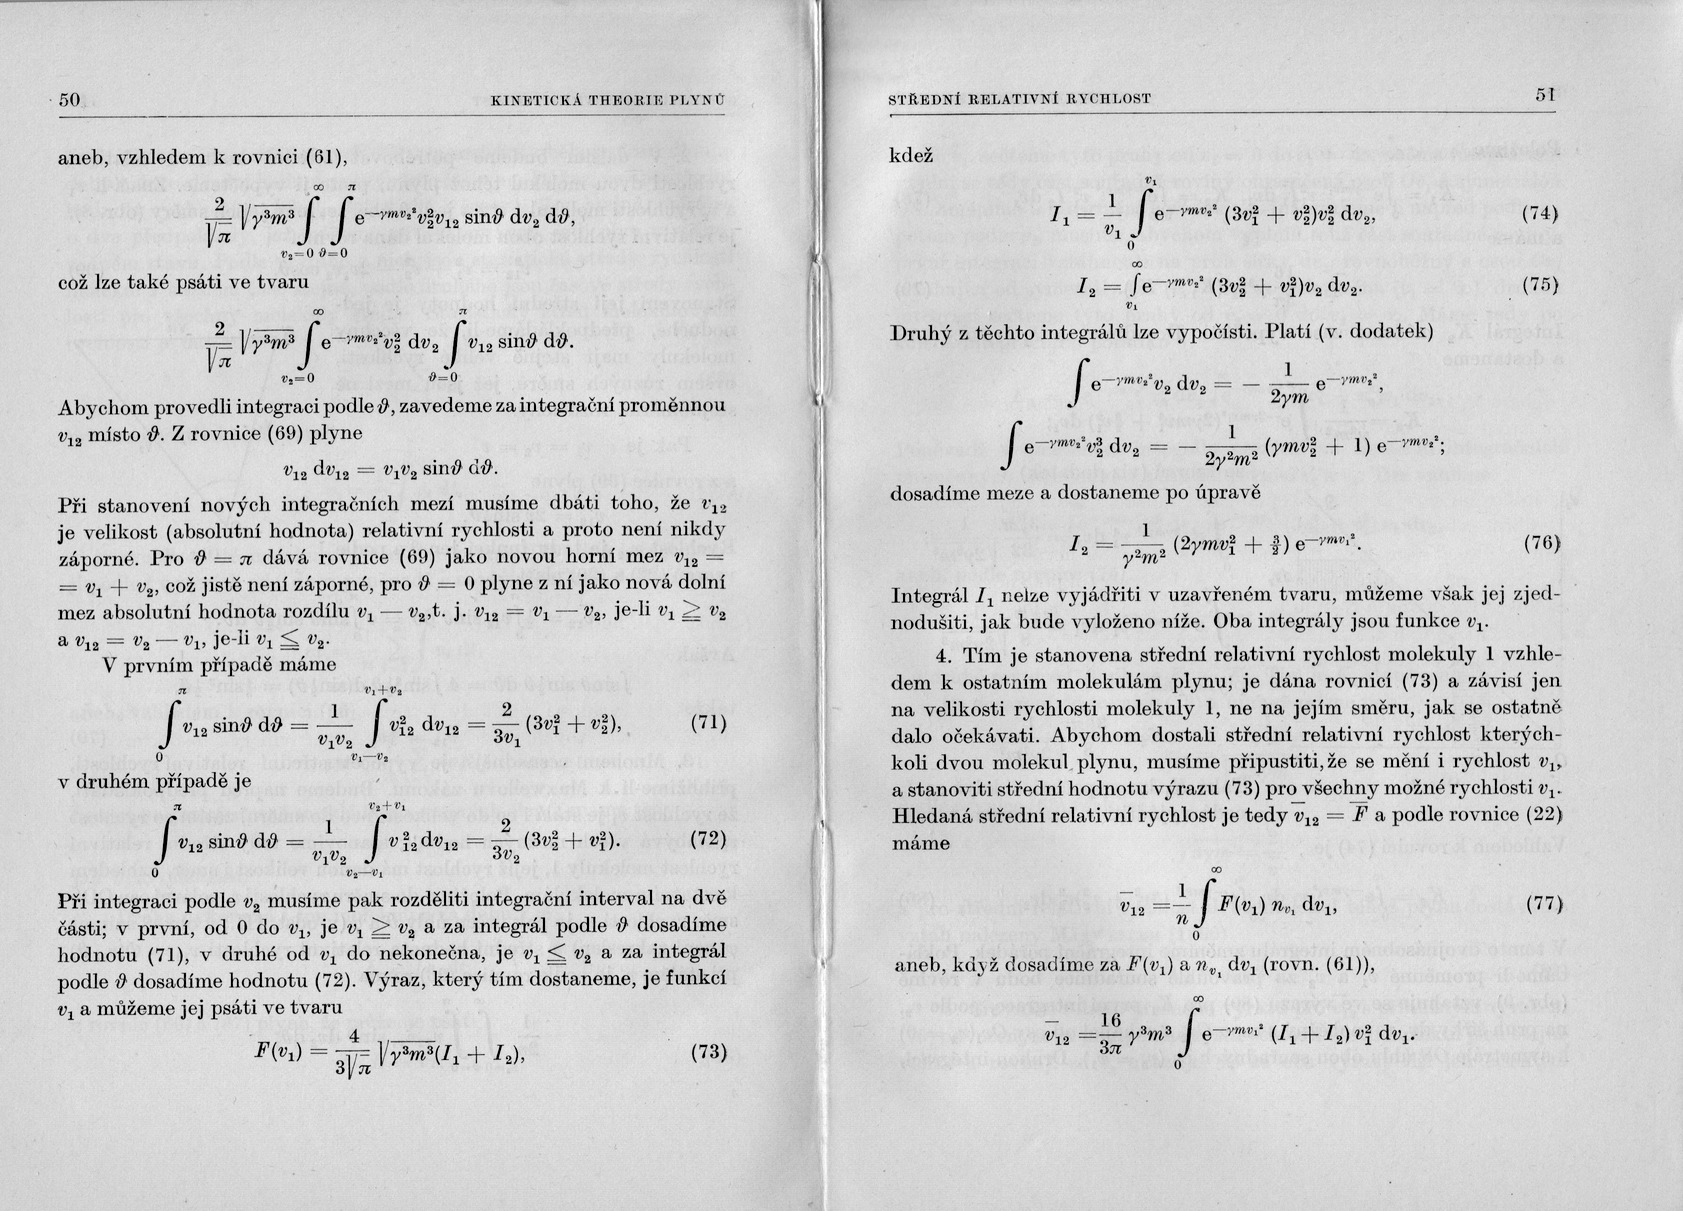 50 KINETICKÁ THEORIE PLYNŮ
aneb, vzhledem k rovnici (61),
2/√π √γ³m³ ∫_{v₂=0}^{∞} ∫_{ϑ=0}^{π} e^{—γmv₂²} v₂² v₁₂ sinϑ dv₂ dϑ,
což lze také psáti ve tvaru
2/√π √γ³m³ ∫_{v₂=0}^{∞} e^{—γmv₂²} v₂² dv₂ ∫_{ϑ=0}^{π} v₁₂ sinϑ dϑ.
Abychom provedli integraci podle ϑ, zavedeme za integrační proměnnou
v₁₂ místo ϑ. Z rovnice (69) plyne
v₁₂ dv₁₂ = v₁v₂ sinϑ dϑ.
Při stanovení nových integračních mezí musíme dbáti toho, že v₁₂
je velikost (absolutní hodnota) relativní rychlosti a proto není nikdy
záporné. Pro ϑ = π dává rovnice (69) jako novou horní mez v₁₂ =
= v₁ + v₂, což jistě není záporné, pro ϑ = 0 plyne z ní jako nová dolní
mez absolutní hodnota rozdílu v₁ — v₂,t. j. v₁₂ = v₁ — v₂, je-li v₁ ≧ v₂
a v₁₂ = v₂ — v₁, je-li v₁ ≦ v₂.
V prvním případě máme
∫_{0}^{π} v₁₂ sinϑ dϑ = 1/(v₁v₂) ∫_{v₁—v₂}^{v₁+v₂} v₁₂² dv₁₂ = 2/(3v₁) (3v₁² + v₂²), (71)
v druhém případě je
∫_{0}^{π} v₁₂ sinϑ dϑ = 1/(v₁v₂) ∫_{v₂—v₁}^{v₂+v₁} v₁₂² dv₁₂ = 2/(3v₂) (3v₂² + v₁²). (72)
Při integraci podle v₂ musíme pak rozděliti integrační interval na dvě
části; v první, od 0 do v₁, je v₁ ≧ v₂ a za integrál podle ϑ dosadíme
hodnotu (71), v druhé od v₁ do nekonečna, je v₁ ≦ v₂ a za integrál
podle ϑ dosadíme hodnotu (72). Výraz, který tím dostaneme, je funkcí
v₁ a můžeme jej psáti ve tvaru
F(v₁) = 4/(3√π) √γ³m³(I₁ + I₂), (73)
STŘEDNÍ RELATIVNÍ RYCHLOST 51
kdež
I₁ = 1/v₁ ∫_{0}^{v₁} e^{—γmv₂²} (3v₁² + v₂²)v₂² dv₂, (74)
I₂ = ∫_{v₁}^{∞} e^{—γmv₂²} (3v₂² + v₁²)v₂ dv₂. (75)
Druhý z těchto integrálů lze vypočísti. Platí (v. dodatek)
∫ e^{—γmv₂²} v₂ dv₂ = — 1/(2γm) e^{—γmv₂²},
∫ e^{—γmv₂²} v₂³ dv₂ = — 1/(2γ²m²) (γmv₂² + 1) e^{—γmv₂²};
dosadíme meze a dostaneme po úpravě
I₂ = 1/(γ²m²) (2γmv₁² + 3/2) e^{—γmv₁²}. (76)
Integrál I₁ nelze vyjádřiti v uzavřeném tvaru, můžeme však jej zjed-
nodušiti, jak bude vyloženo níže. Oba integrály jsou funkce v₁.
4. Tím je stanovena střední relativní rychlost molekuly 1 vzhle-
dem k ostatním molekulám plynu; je dána rovnicí (73) a závisí jen
na velikosti rychlosti molekuly 1, ne na jejím směru, jak se ostatně
dalo očekávati. Abychom dostali střední relativní rychlost kterých-
koli dvou molekul plynu, musíme připustiti,že se mění i rychlost v₁,
a stanoviti střední hodnotu výrazu (73) pro všechny možné rychlosti v₁.
Hledaná střední relativní rychlost je tedy v̅₁₂ = F̅ a podle rovnice (22)
máme
v̅₁₂ = 1/n ∫_{0}^{∞} F(v₁) n_{v₁} dv₁, (77)
aneb, když dosadíme za F(v₁) a n_{v₁} dv₁ (rovn. (61)),
v̅₁₂ = 16/(3π) γ³m³ ∫_{0}^{∞} e^{—γmv₁²} (I₁ + I₂) v₁² dv₁.